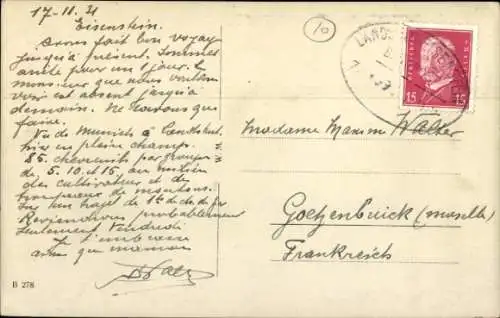 17-11.31
Eisenstein.
Avons fait bon voyage
jusqu'à présent. Sommes
arrêté pour un 1 jour. Le
monsieur que nous voulions
voir est absent jusqu'à
demain. Ne savons que
faire.
Vu de Munich à Landshut
hier en plein champ
85. chevreuils par groupe
de 5. 10. et 15, au milieu
des cultivateurs et de
troupeaux de moutons.
Sur un trajet de 1h de ch. de fer
Reviendrons probablement
seulement Vendredi
Je t'embrasse
ainsi que maman
Walter
B 278
LANDS
DEUTSCHES REICH
15 15
Madame Maxim Walter
Goetzenbrück (moselle)
Frankreich